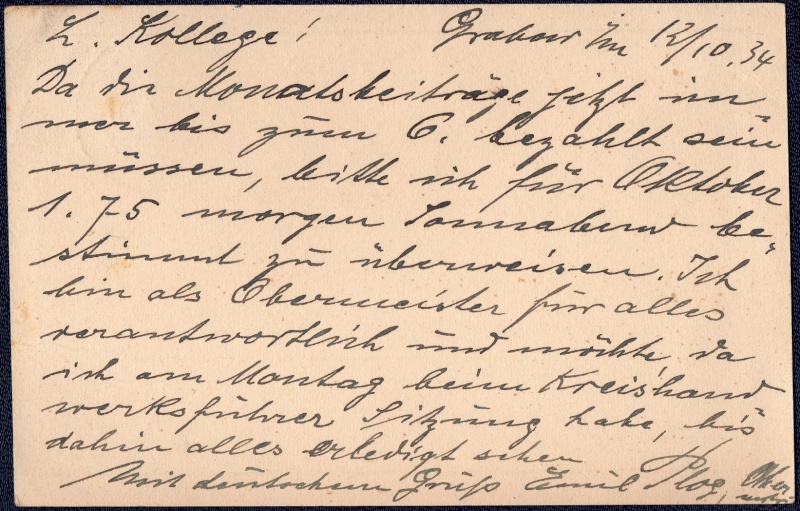 L. Kollege! Grabow i/m 12/10.34
Da die Monatsbeiträge jetzt im=
mer bis zum 6. bezahlt sein
müssen, bitte ich für Oktober
1.75 morgen Sonnabend be=
stimmt zu überweisen. Ich
bin als Obermeister für alles
verantwortlich und möchte, da
ich am Montag beim Kreishand
werksführer Sitzung habe, bis
dahin alles erledigt sehen
Mit deutschem Gruß Emil Plog, Ober